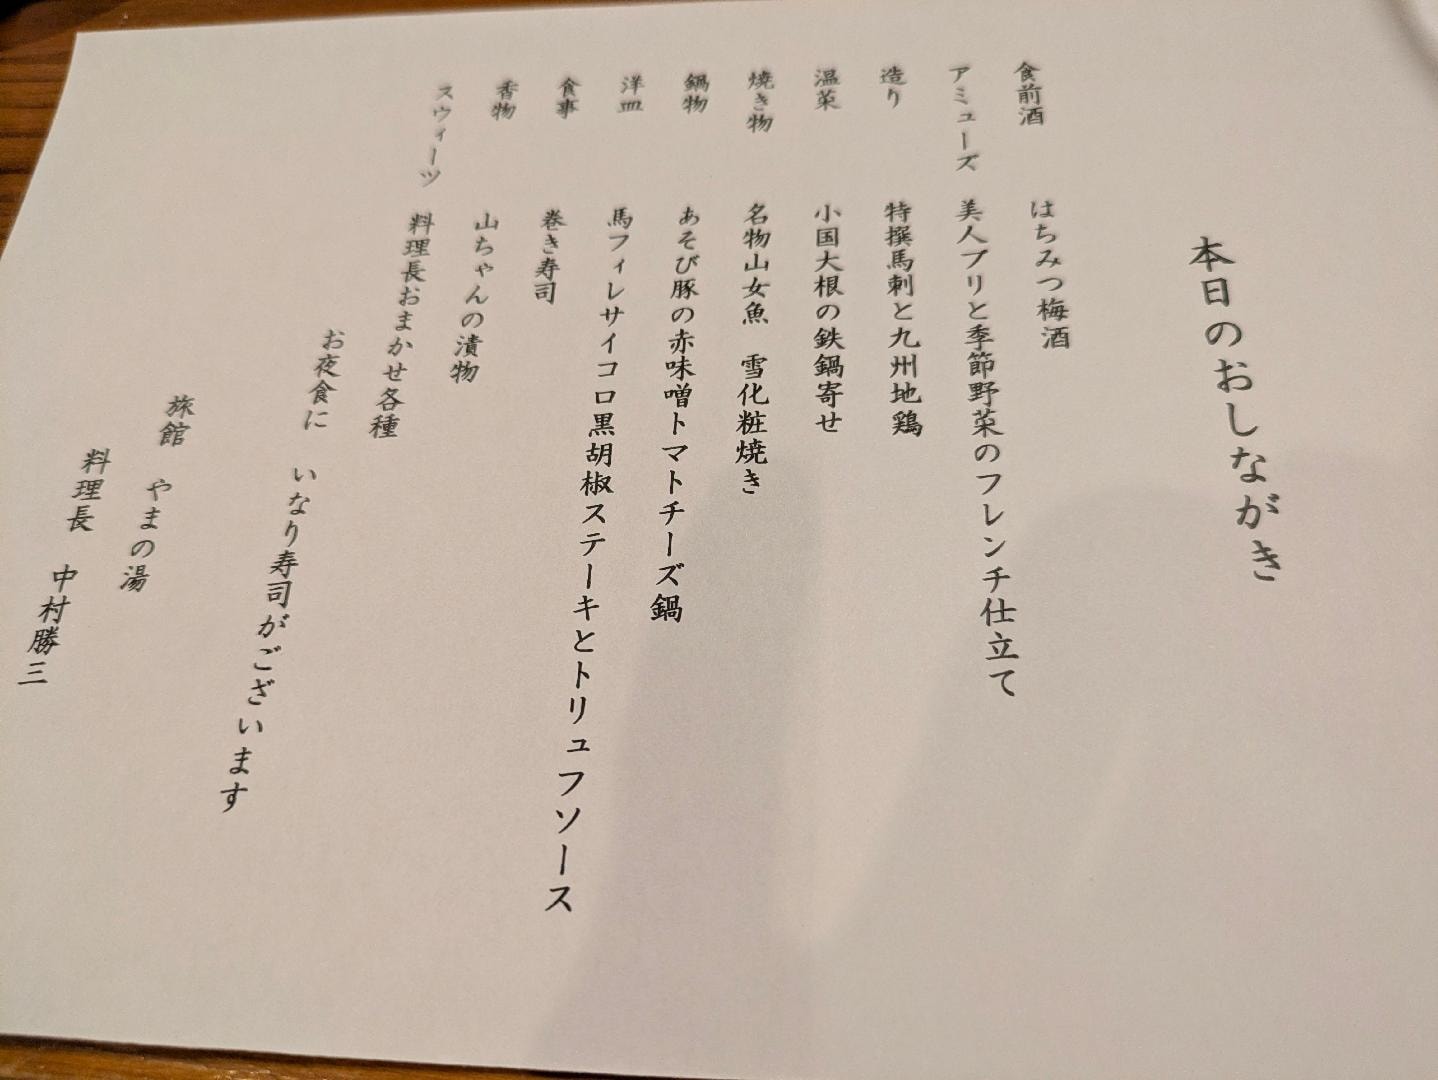 本日のおしながき
食前酒　はちみつ梅酒
アミューズ　美人ブリと季節野菜のフレンチ仕立て
造り　特撰馬刺と九州地鶏
温菜　小国大根の鉄鍋寄せ
焼き物　名物山女魚　雪化粧焼き
鍋物　あそび豚の赤味噌トマトチーズ鍋
洋皿　馬フィレサイコロ黒胡椒ステーキとトリュフソース
食事　巻き寿司
香物　山ちゃんの漬物
スウィーツ　料理長おまかせ各種
お夜食に　いなり寿司がございます
旅館　やまの湯
料理長　中村勝三